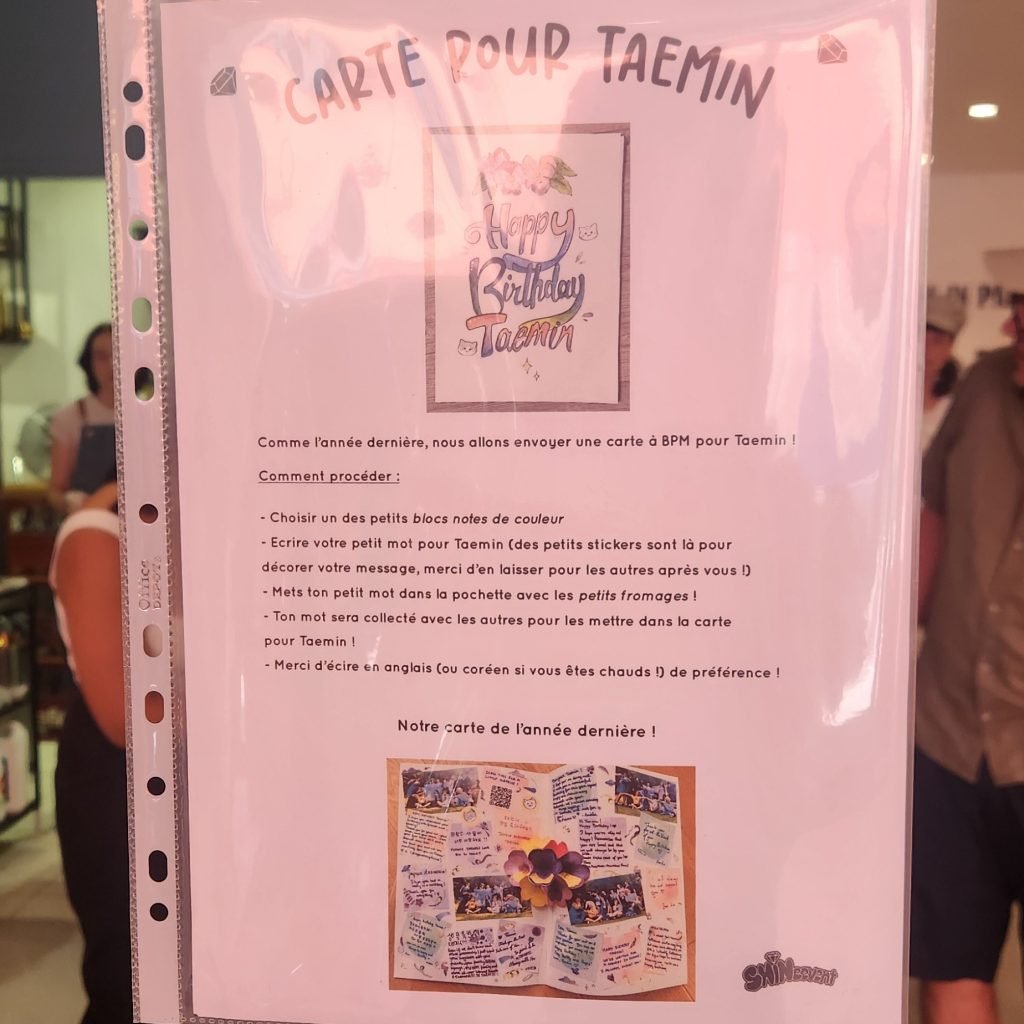 CARTE POUR TAEMIN
Happy
Birthday
Taemin
Comme l'année dernière, nous allons envoyer une carte à BPM pour Taemin !
Comment procéder :
- Choisir un des petits blocs notes de couleur
- Ecrire votre petit mot pour Taemin (des petits stickers sont là pour
décorer votre message, merci d'en laisser pour les autres après vous !)
- Mets ton petit mot dans la pochette avec les petits fromages !
- Ton mot sera collecté avec les autres pour les mettre dans la carte
pour Taemin !
- Merci d'écire en anglais (ou coréen si vous êtes chauds !) de préférence !
Notre carte de l'année dernière !
SHINeevent
Office
DEPOT